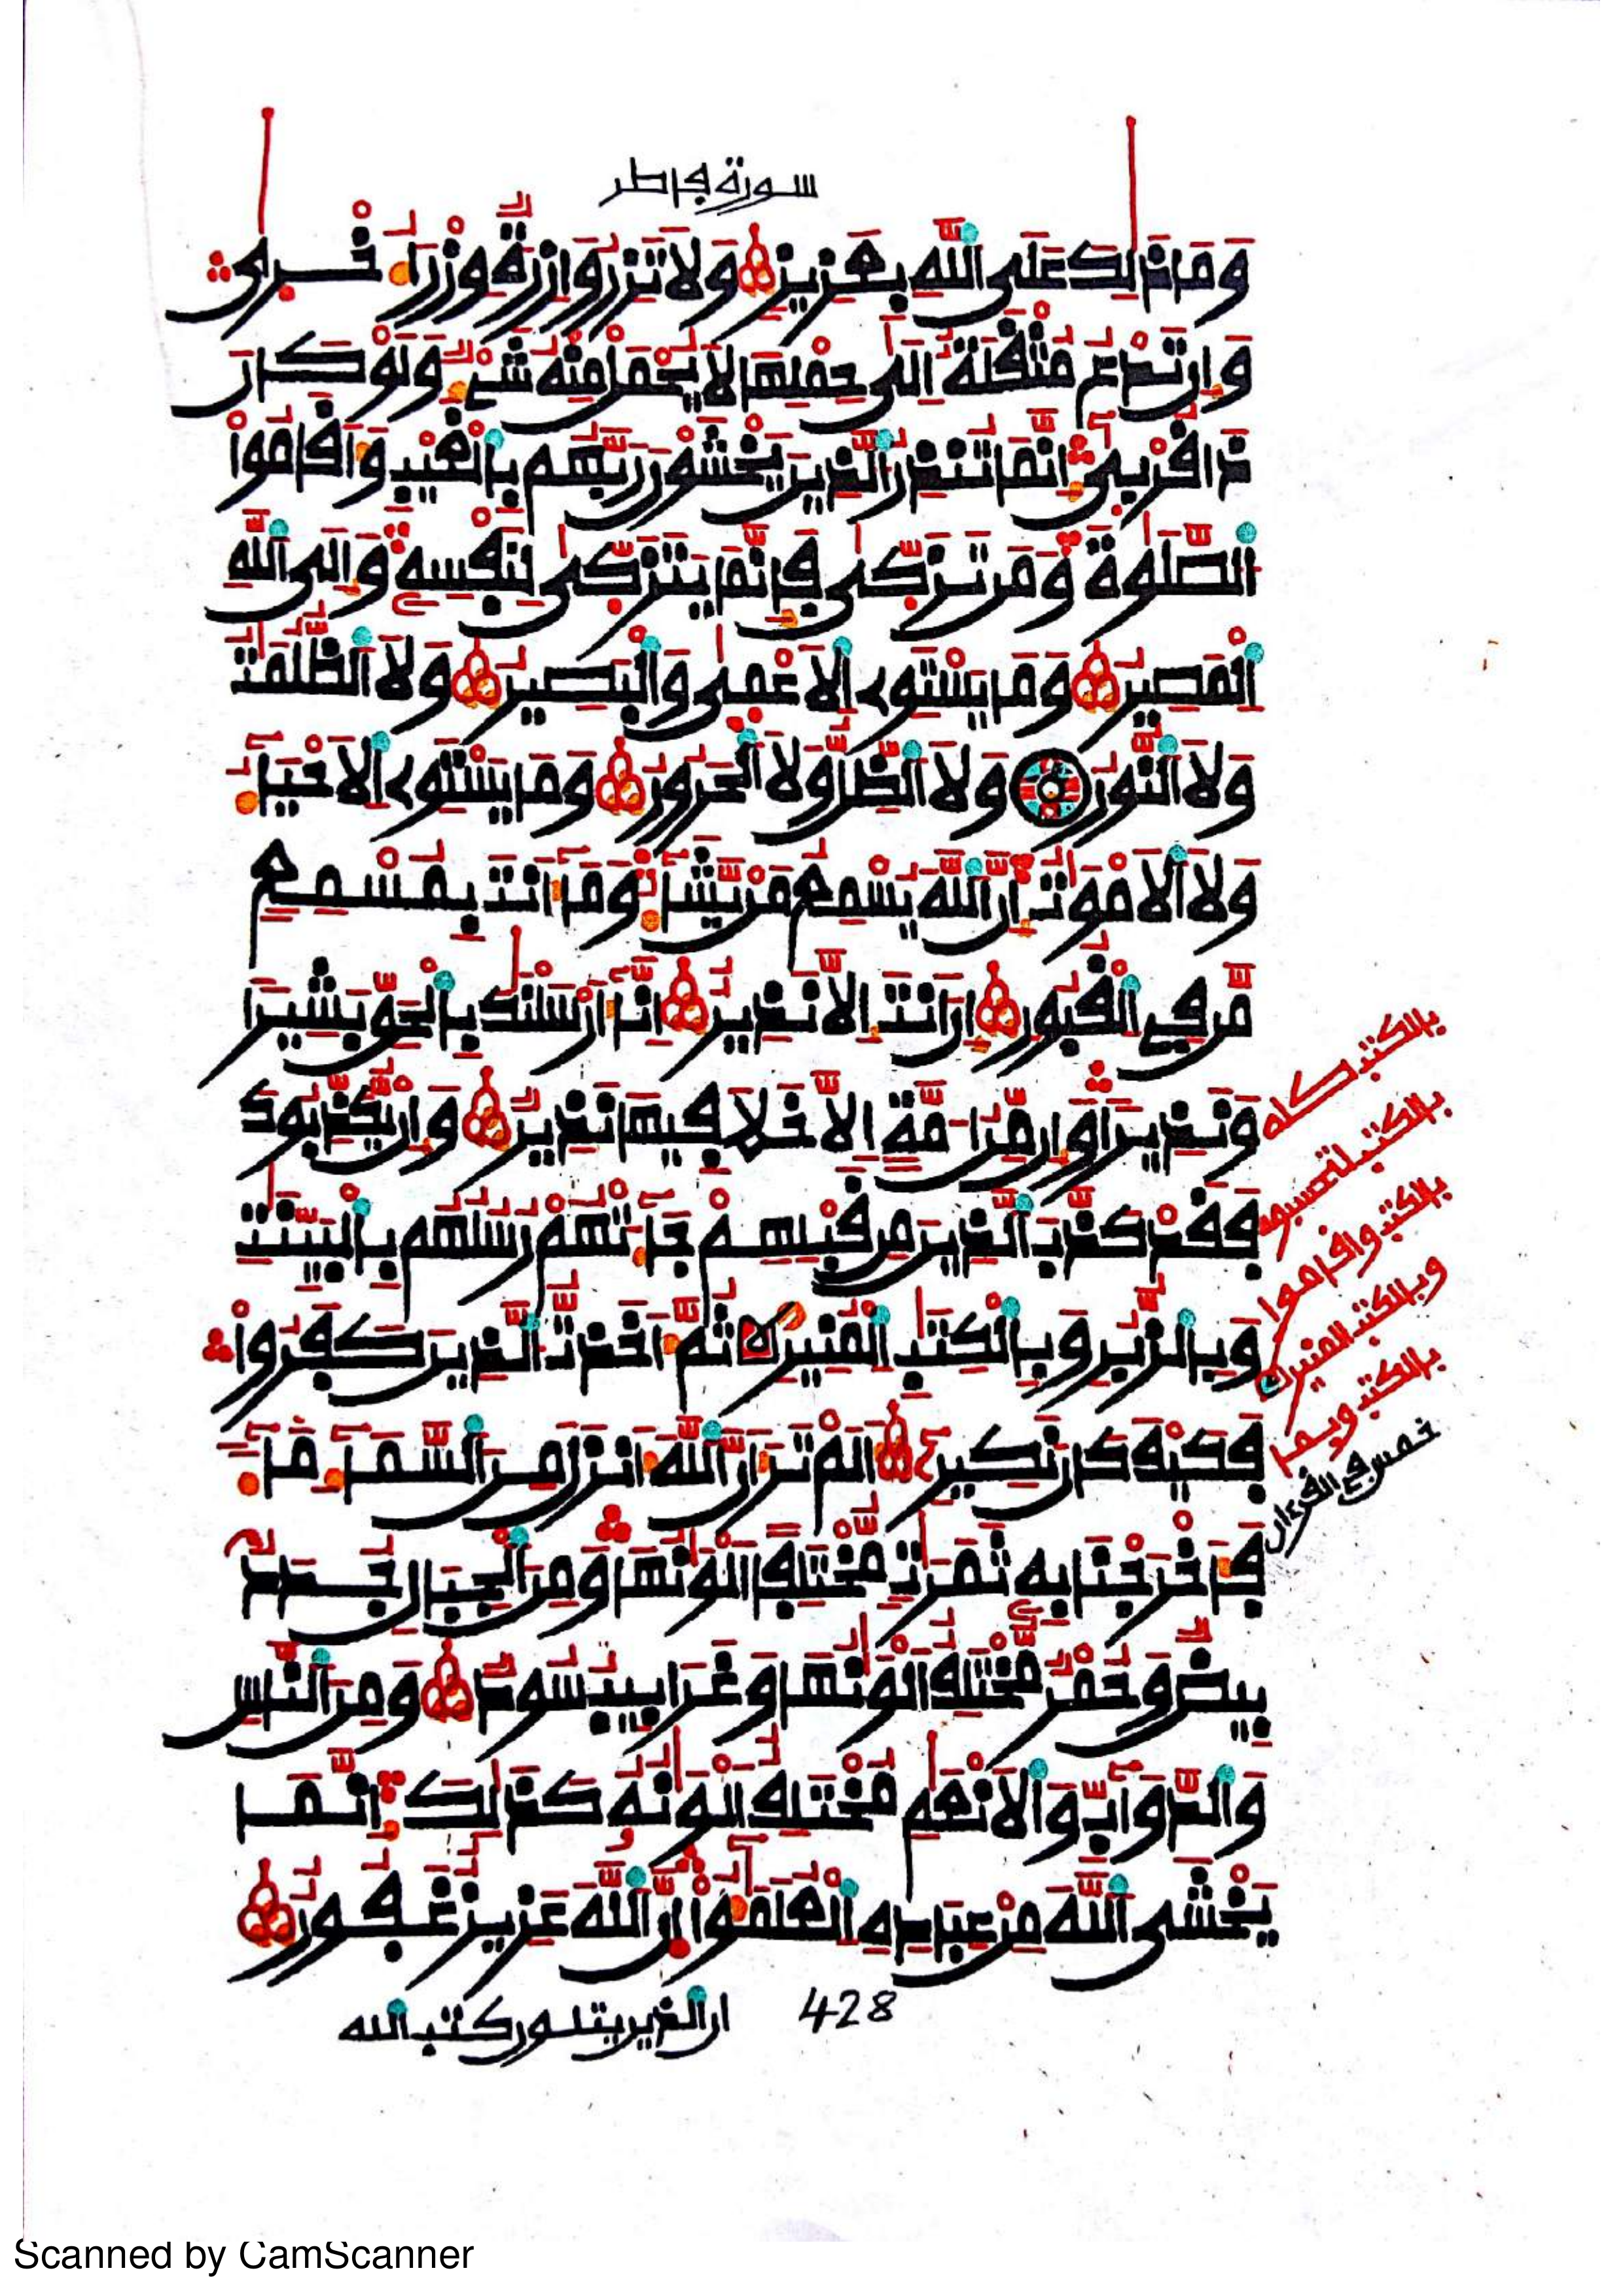 سورة فاطر
وَمَا ذَٰلِكَ عَلَى ٱللَّهِ بِعَزِيزٍ وَلَا تَزِرُ وَازِرَةٌ وِزْرَ أُخْرَىٰ
وَإِن تَدْعُ مُثْقَلَةٌ إِلَىٰ حِمْلِهَا لَا يُحْمَلْ مِنْهُ شَيْءٌ وَلَوْ كَانَ
ذَا قُرْبَىٰ إِنَّمَا تُنذِرُ ٱلَّذِينَ يَخْشَوْنَ رَبَّهُم بِٱلْغَيْبِ وَأَقَامُوا۟
ٱلصَّلَوٰةَ وَمَن تَزَكَّىٰ فَإِنَّمَا يَتَزَكَّىٰ لِنَفْسِهِ وَإِلَى ٱللَّهِ
ٱلْمَصِيرُ وَمَا يَسْتَوِي ٱلْأَعْمَىٰ وَٱلْبَصِيرُ وَلَا ٱلظُّلُمَٰتُ
وَلَا ٱلنُّورُ وَلَا ٱلظِّلُّ وَلَا ٱلْحَرُورُ وَمَا يَسْتَوِي ٱلْأَحْيَآءُ
وَلَا ٱلْأَمْوَٰتُ إِنَّ ٱللَّهَ يُسْمِعُ مَن يَشَآءُ وَمَآ أَنتَ بِمُسْمِعٍ
مَّن فِي ٱلْقُبُورِ إِنْ أَنتَ إِلَّا نَذِيرٌ إِنَّآ أَرْسَلْنَٰكَ بِٱلْحَقِّ بَشِيرًا
وَنَذِيرًا وَإِن مِّنْ أُمَّةٍ إِلَّا خَلَا فِيهَا نَذِيرٌ وَإِن يُكَذِّبُوكَ
فَقَدْ كَذَّبَ ٱلَّذِينَ مِن قَبْلِهِمْ جَآءَتْهُمْ رُسُلُهُم بِٱلْبَيِّنَٰتِ
وَبِٱلزُّبُرِ وَبِٱلْكِتَٰبِ ٱلْمُنِيرِ ثُمَّ أَخَذتُّ ٱلَّذِينَ كَفَرُوا۟
فَكَيْفَ كَانَ نَكِيرِ أَلَمْ تَرَ أَنَّ ٱللَّهَ أَنزَلَ مِنَ ٱلسَّمَآءِ مَآءً
فَأَخْرَجْنَا بِهِ ثَمَرَٰتٍ مُّخْتَلِفًا أَلْوَٰنُهَا وَمِنَ ٱلْجِبَالِ جُدَدٌ
بِيضٌ وَحُمْرٌ مُّخْتَلِفٌ أَلْوَٰنُهَا وَغَرَابِيبُ سُودٌ وَمِنَ ٱلنَّاسِ
وَٱلدَّوَآبِّ وَٱلْأَنْعَٰمِ مُخْتَلِفٌ أَلْوَٰنُهُ كَذَٰلِكَ إِنَّمَا
يَخْشَى ٱللَّهَ مِنْ عِبَادِهِ ٱلْعُلَمَٰٓؤُا۟ إِنَّ ٱللَّهَ عَزِيزٌ غَفُورٌ
بالكتب كله
بالكتب لتحسبوه
بالكتب واقاموا
وبالكتب المنير
بالكتب وبما
خمس في القرءان
428
ان الذين يتلون كتب الله
Scanned by CamScanner